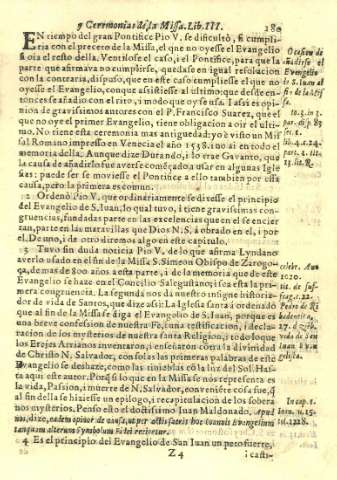 y Ceremonias de la Missa. Lib. III. 180
EN tiempo del gran Pontifice Pio V. se dificultò, si cumpli-
ria con el precepto de la Missa, el que no oyesse el Evangelio
si oia el resto della. Ventilose el caso, i el Pontifice, para que la
parte que afirmava no cumplirse, quedase en igual resolucion
con la contraria, dispuso, que en este caso cumpliesse el que no
oyesse el Evangelio, conque asistiesse al ultimo: que desde en-
tonces se añadio con el rito, i modo que oy se usa. I assi es opi-
nion de gravissimos autores con el P. Francisco Suarez, que el
que no oye el primer Evangelio, tiene obligacion a oir el ulti-
mo. No tiene esta ceremonia mas antiguedad; yo è visto un Mis-
sal Romano impresso en Venecia el año 1558. i no ai en todo el
memoria della. Aunque dize Durando, i lo trae Gavanto, que
la causa de añadirlo fue averse começado a usar en algunas Igle-
sias: puede ser se moviesse el Pontifice a ello tambien por essa
causa, pero la primera es comun.
2 Ordenò Pio V. que ordinariamente se dixesse el principio
del Evangelio de S. Iuan, lo qual tuvo, i tiene gravissimas con-
gruencias, fundadas parte en las excelencias que en el se encier-
ran, parte en las maravillas que Dios N. S. à obrado en el, i por
el. De uno, i de otro diremos algo en este capitulo.
3 Tuvo sin duda noticia Pio V. de lo que afirma Lyndano
averlo usado en el fin de la Missa S. Simeon Obispo de Zarago-
ça, de mas de 800 años a esta parte, i de la memoria que de este
Evangelio se haze en el Concilio Salegustano; i sea esta la pri-
mera congruencia. La segunda nos da nuestro insigne historia-
dor de vida de Santos, que dize assi: La Iglesia santa à ordenado
que al fin de la Missa se diga el Evangelio de S. Iuan, porque es
una breve confession de nuestra Fè, i una testificacion, i decla-
racion de los mysterios de nuestra santa Religion; i todo lo que
los Erejes Arrianos inventaron, i enseñaron còtra la divinidad
de Christo N. Salvador, con solas las primeras palabras de este
Evangelio se deshaze, como las nieblas cō la luz del Sol. Has-
ta aqui este autor. Porq̃ si lo que en la Missa se nos representa es
la vida, Passion, i muerte de N. Salvador, convenible cosa fue, q̃
al fin della se hiziesse un epilogo, i recapitulacion de los sobera-
nos mysterios. Penso esto el doctissimo Iuan Maldonado. Apud
nos, dize, eadem opinor de causa, ut per assistatis hoc Ioannis Evangelium
tanquam alterum Symbolum Fidei recitetur.
4 Es el principio del Evangelio de San Iuan un peto fuerte,
Z 4 i casti-
Ocasion de
añadirse el
Evangelio
de S. Iuan al
fin de la Mis-
sa.
to. 3. in 3.
par. disp. 83
sect. 1.
lib. 4. c. 24.
part. 2. tit.
celebr. Ann
1020.
27. de Dizi.
vida de
San Iuan E-
vangelista.
In cap. 1.
Ioan. n. 15.